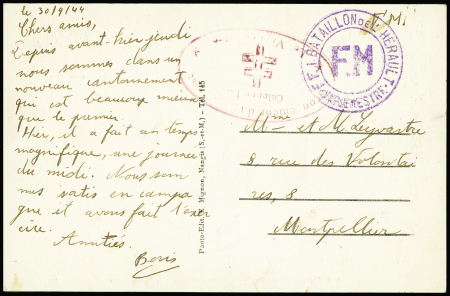 le 30/9/44
Chers amis,
Depuis avant-hier jeudi
nous sommes dans un
nouveau cantonnement
qui est beaucoup mieux
que le premier.
Hier, il a fait un temps
magnifique, une journée
du midi. Nous som
mes sortis en campa
gne et avons fait l'exer
cice.
Amitiés.
Boris
Photo-Edit. M. Mignon, Nangis (S.-et-M.) - Tél. 145
F.M.
F.F.I. BATAILLON DE L'HERAULT
F.M
VAGUEMESTRE
Mme et M. Leyvastre
8 rue des Volontai
res, 8
Montpellier